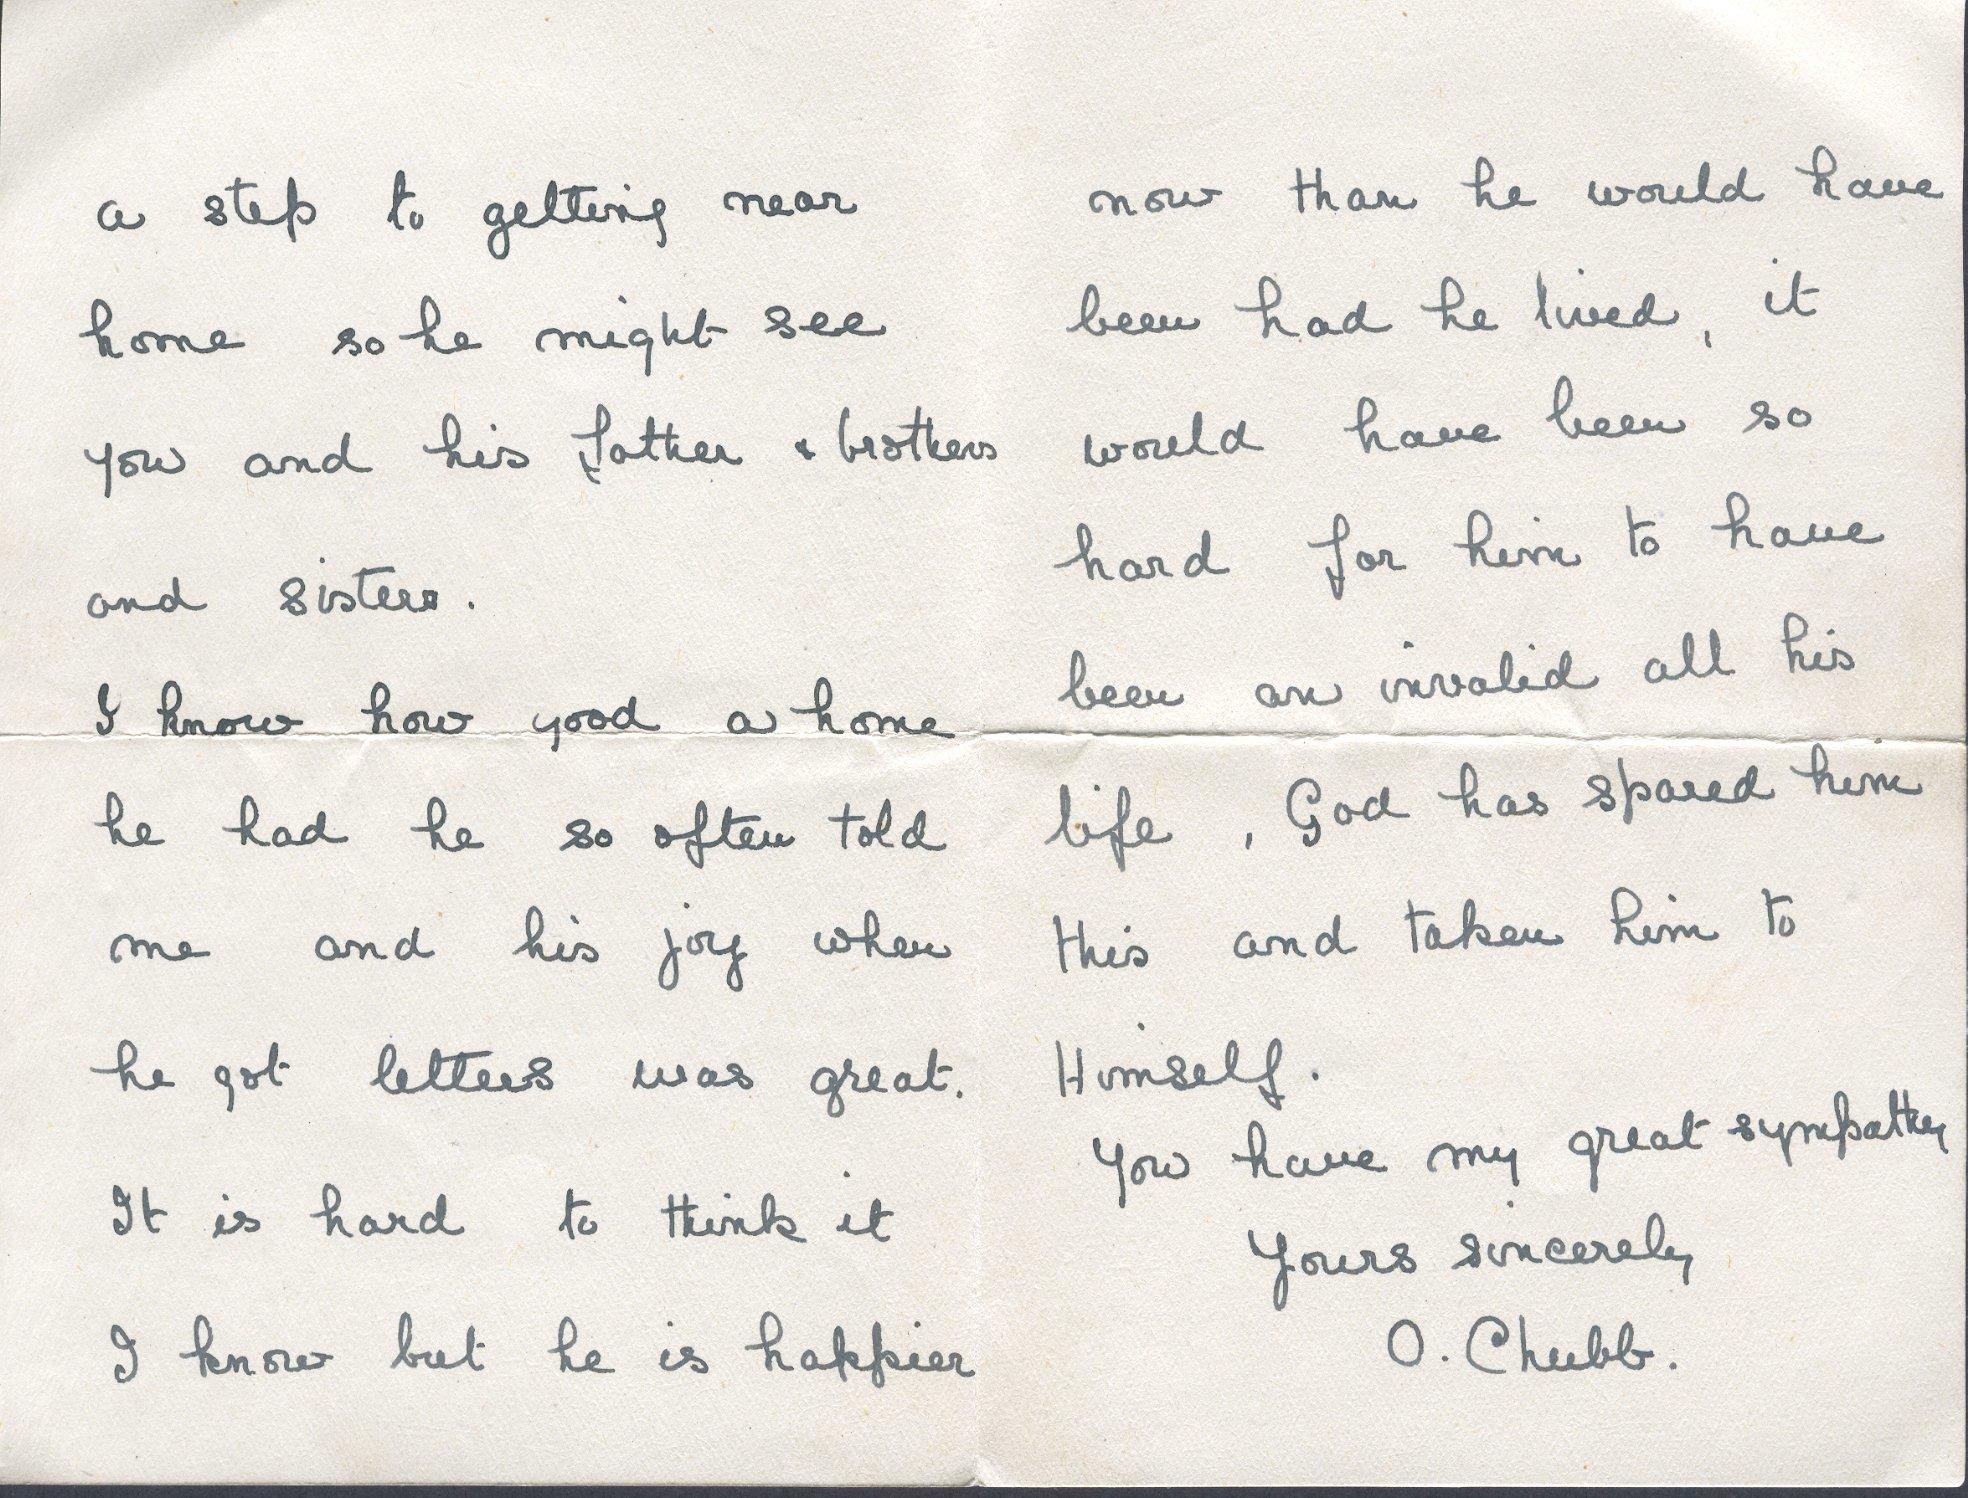 a step to getting near
home so he might see
you and his father & brothers
and sisters.
I know how good a home
he had he so often told
me and his joy when
he got letters was great.
It is hard to think it
I know but he is happier
now than he would have
been had he lived, it
would have been so
hard for him to have
been an invalid all his
life, God has spared him
this and taken him to
Himself.
You have my great sympathy
Yours sincerely
O. Chubb.